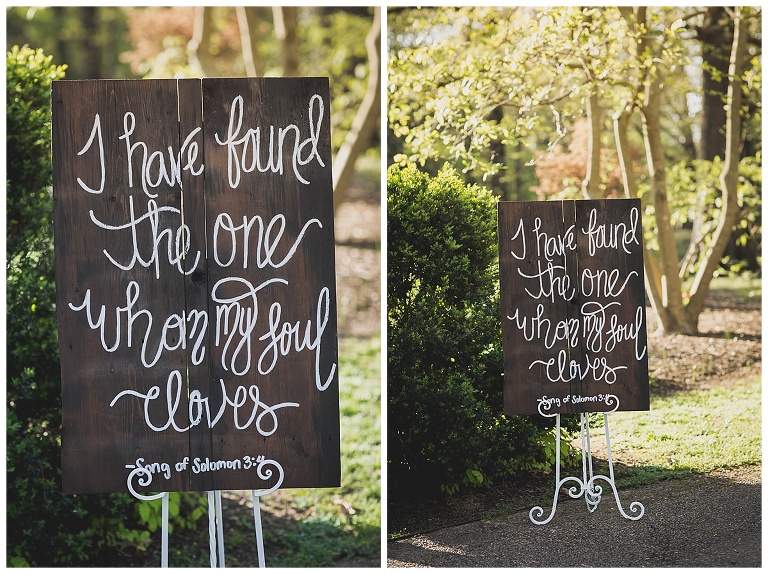 I have found
the one
whom my soul
loves
-Song of Solomon 3:4
I have found
the one
whom my soul
loves
-Song of Solomon 3:4